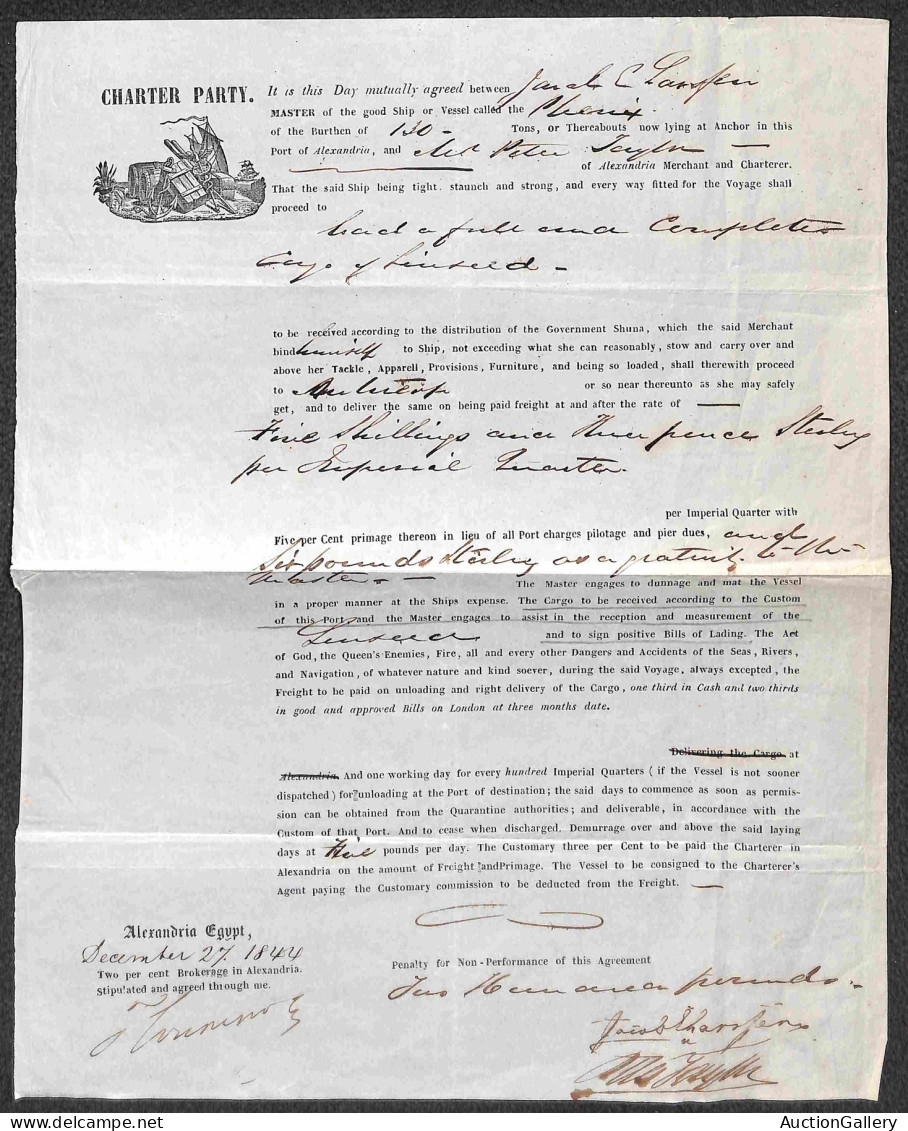 CHARTER PARTY.
It is this Day mutually agreed between Jacob C
MASTER of the good Ship or Vessel called the Phenix.
of the Burthen of 130 - Tons, or Thereabouts now lying at Anchor in this
Port of Alexandria, and Peter Taylor —
of Alexandria Merchant and Charterer.
That the said Ship being tight. staunch and strong, and every way fitted for the Voyage shall
proceed to
load a full and Complete
Cargo of Linseed -
to be received according to the distribution of the Government Shuna, which the said Merchant
bind himself to Ship, not exceeding what she can reasonably, stow and carry over and
above her Tackle, Apparell, Provisions, Furniture, and being so loaded, shall therewith proceed
to or so near thereunto as she may safely
get, and to deliver the same on being paid freight at and after the rate of —
Five Shillings and Three pence Sterling
per Imperial Quarter.
per Imperial Quarter with
Five per Cent primage thereon in lieu of all Port charges pilotage and pier dues, and
Six pounds Sterling as a gratuity to the
Master. - The Master engages to dunnage and mat the Vessel
in a proper manner at the Ships expense. The Cargo to be received according to the Custom
of this Port and the Master engages to assist in the reception and measurement of the
Linseed and to sign positive Bills of Lading. The Act
of God, the Queen's Enemies, Fire, all and every other Dangers and Accidents of the Seas, Rivers,
and Navigation, of whatever nature and kind soever, during the said Voyage, always excepted, the
Freight to be paid on unloading and right delivery of the Cargo, one third in Cash and two thirds
in good and approved Bills on London at three months date.
Delivering the Cargo at
Alexandria. And one working day for every hundred Imperial Quarters ( if the Vessel is not sooner
dispatched ) for unloading at the Port of destination; the said days to commence as soon as permis-
sion can be obtained from the Quarantine authorities; and deliverable, in accordance with the
Custom of that Port. And to cease when discharged. Demurrage over and above the said laying
days at Five pounds per day. The Customary three per Cent to be paid the Charterer in
Alexandria on the amount of Freight and Primage. The Vessel to be consigned to the Charterer's
Agent paying the Customary commission to be deducted from the Freight. —
Alexandria Egypt,
December 27. 1844
Two per cent Brokerage in Alexandria.
Stipulated and agreed through me.
Penalty for Non-Performance of this Agreement
Two Hundred pounds. -
Jacob
Taylor
AuctionGallery